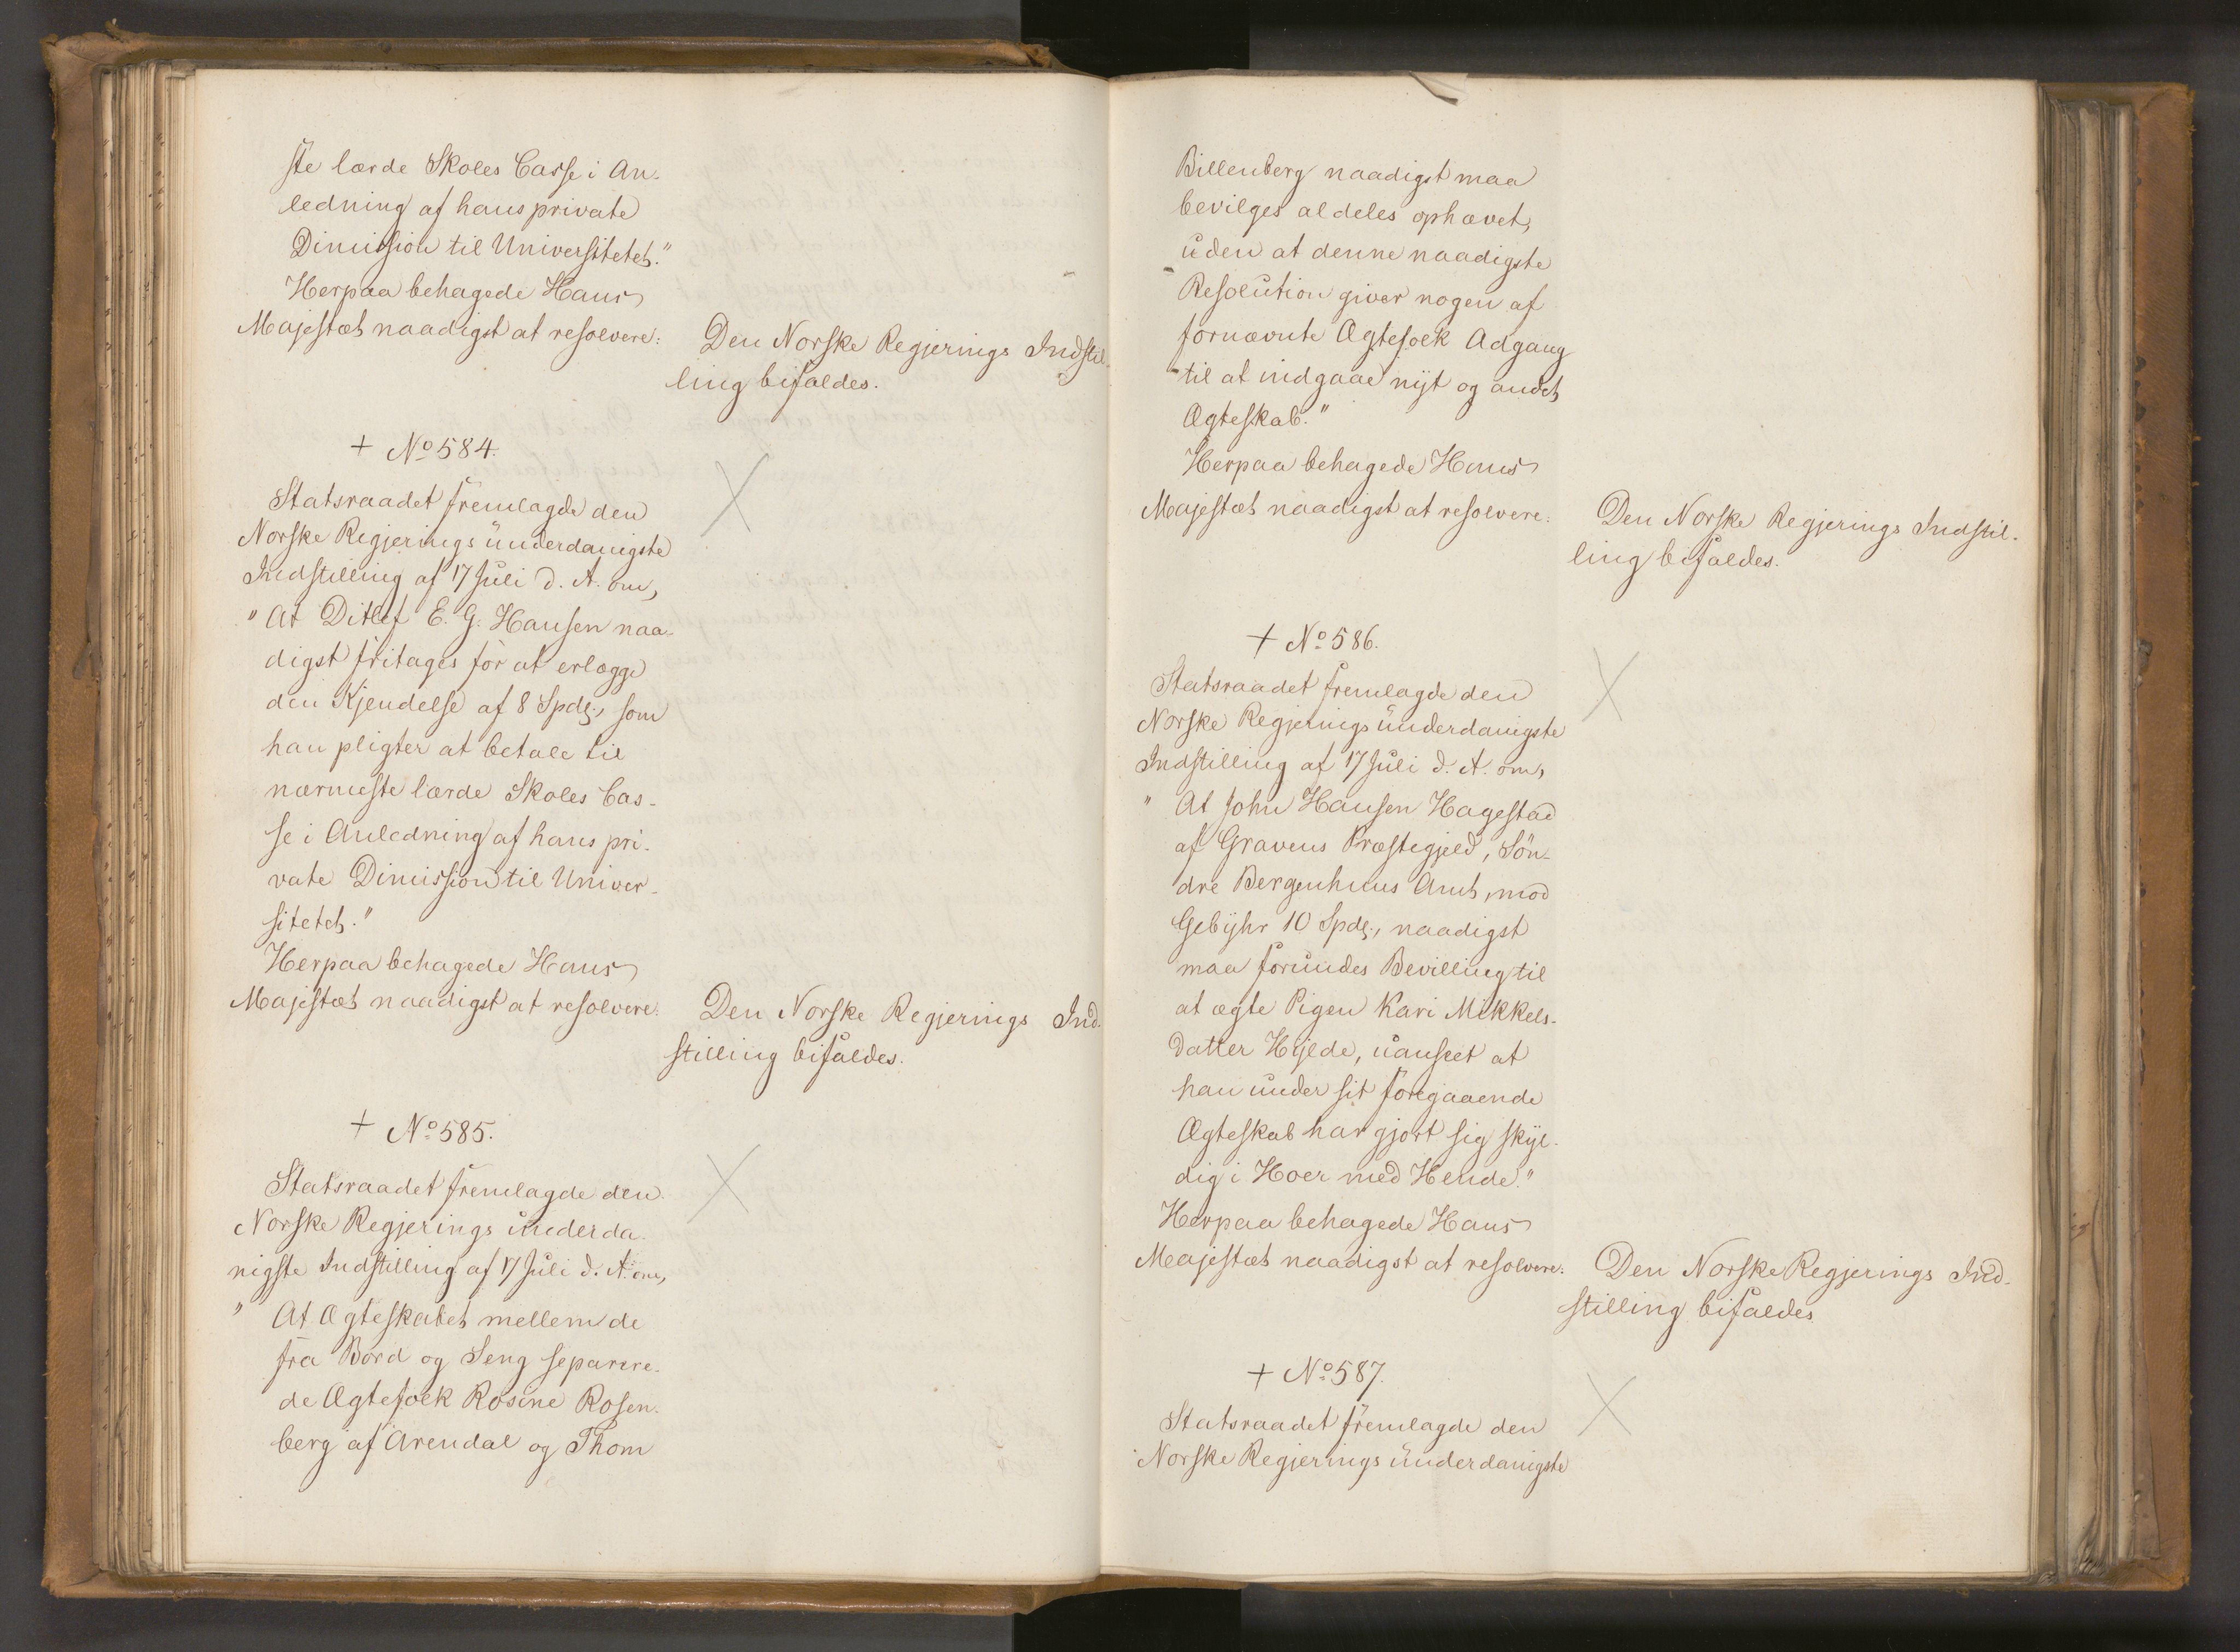 ste lærde Skoles Casse i An-
ledning af hans private
Dimission til Universitetet."
Herpaa behagede Hans
Majestæt naadigst at resolvere:
Den Norske Regjerings Indstil-
ling bifaldes.
+ No 584.
Statsraadet fremlagde den
Norske Regjerings underdanigste
Indstilling af 17 Juli d. A. om,
"At Ditlef E. G. Hansen naa-
digst fritages for at erlægge
den Kjendelse af 8 Spdlr., som
han pligter at betale til
nærmeste lærde Skoles Cas-
se i Anledning af hans pri-
vate Dimission til Univer-
sitetet."
Herpaa behagede Hans
Majestæt naadigst at resolvere:
Den Norske Regjerings Ind-
stilling bifaldes.
+ No 585.
Statsraadet fremlagde den
Norske Regjerings underda-
nigste Indstilling af 17 Juli d. A. om,
" At Ægteskabet mellem de
fra Bord og Seng separere-
de Ægtefolk Rosine Rosen-
berg af Arendal og Thom
Billenberg naadigst maa
bevilges aldeles ophævet,
uden at denne naadigste
Resolution giver nogen af
fornævnte Ægtefolk Adgang
til at indgaae nyt og andet
Ægteskab."
Herpaa behagede Hans
Majestæt naadigst at resolvere:
Den Norske Regjerings Indstil-
ling bifaldes.
+ No 586.
Statsraadet fremlagde den
Norske Regjerings underdanigste
Indstilling af 17 Juli d. A. om,
" At John Hansen Hagestad
af Gravens Præstegjeld, Søn-
dre Bergenhuus Amt, mod
Gebyhr 10 Spdlr., naadigst
maa forundes Bevilling til
at ægte Pigen Kari Mikkels-
datter Hylde, uanseet at
han under sit foregaaende
Ægteskab har gjort sig skyl-
dig i Hoer med Hende."
Herpaa behagede Hans
Majestæt naadigst at resolvere:
Den Norske Regjerings Ind-
stilling bifaldes
+ No 587.
Statsraadet fremlagde den
Norske Regjerings underdanigste